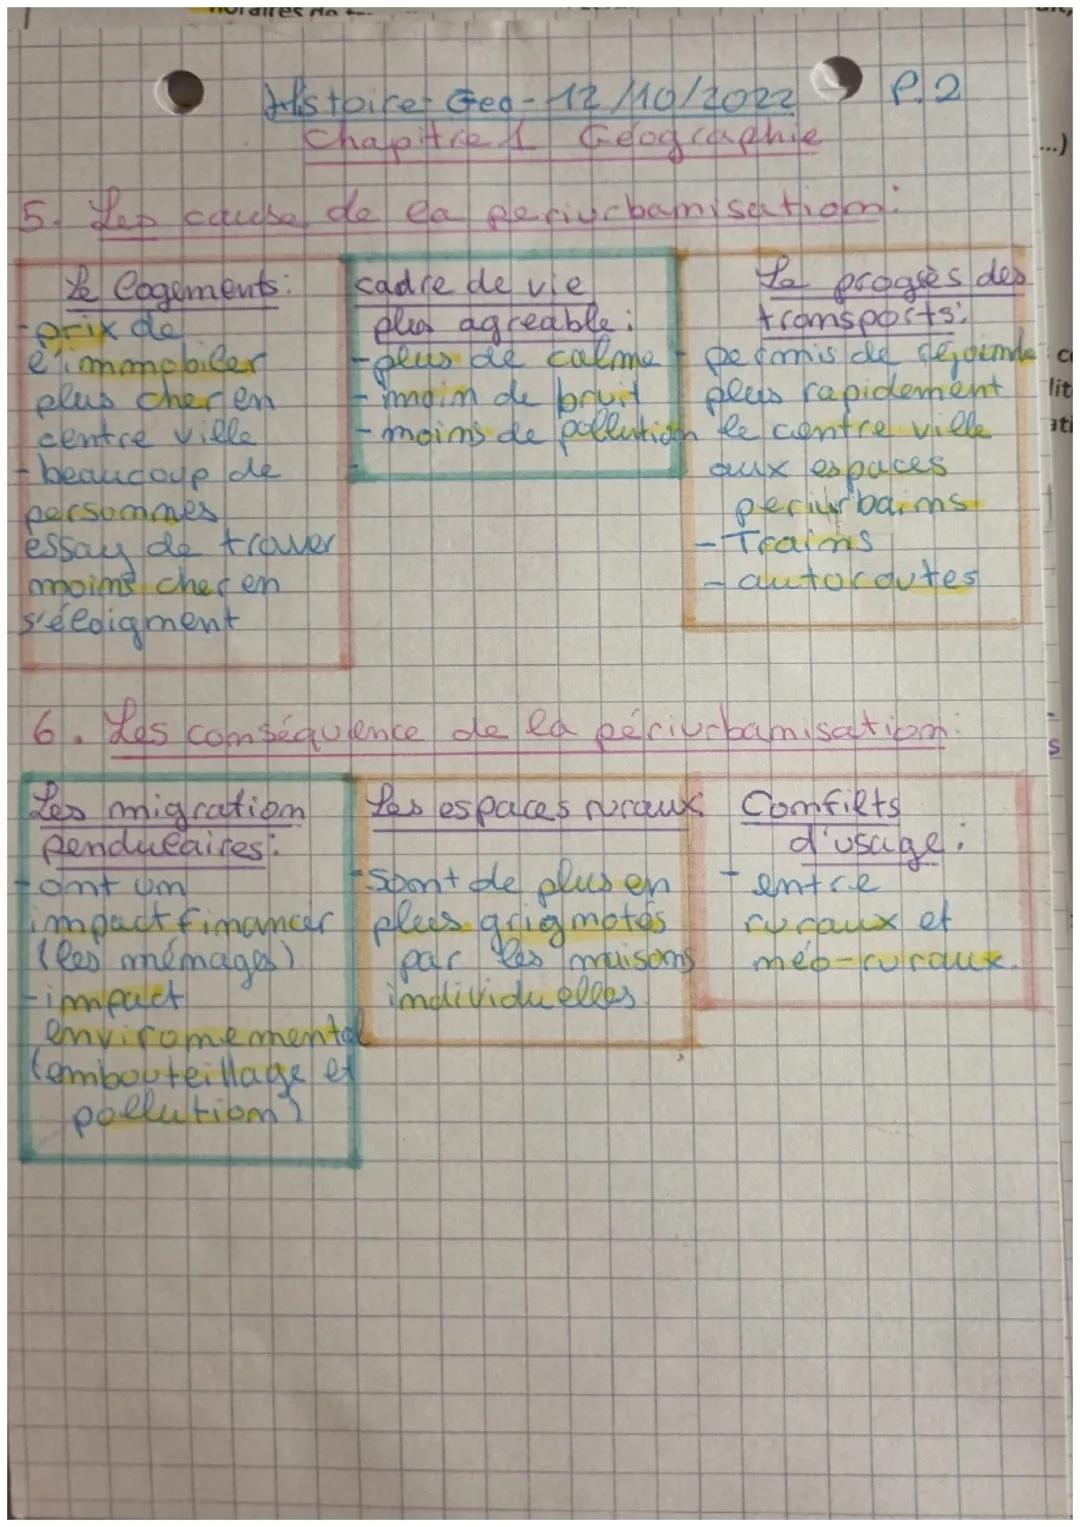 Histoire Geo - 12/10/2022 P.2
Chapitre 1 Géographie
5. Les cause de la periurbanisation:
Le logements:
- prix de
l'immobiler
plus cher en
centre ville
- beaucoup de
personnes
essay de trouver
moins cher en
s'éloigment
cadre de vie
plus agreable:
- plus de calme
- moin de bruit
- moins de pollution
-
La progrès des
transports:
- permis de rejoindre
plus rapidement
le centre ville
aux espaces
periurbains
- Trains
- autoroutes
6. Les conséquence de la périurbanisation:
Les migration
pendulaires:
- ont un
impact financer
(les ménages)
- impact
enviromemental
(embouteillage et
pollution)
Les espaces ruraux:
- sont de plus en
plus grignotés
par les maisons
individuelles
Confilts
d'usage:
- entre
ruraux et
néo-ruraux.